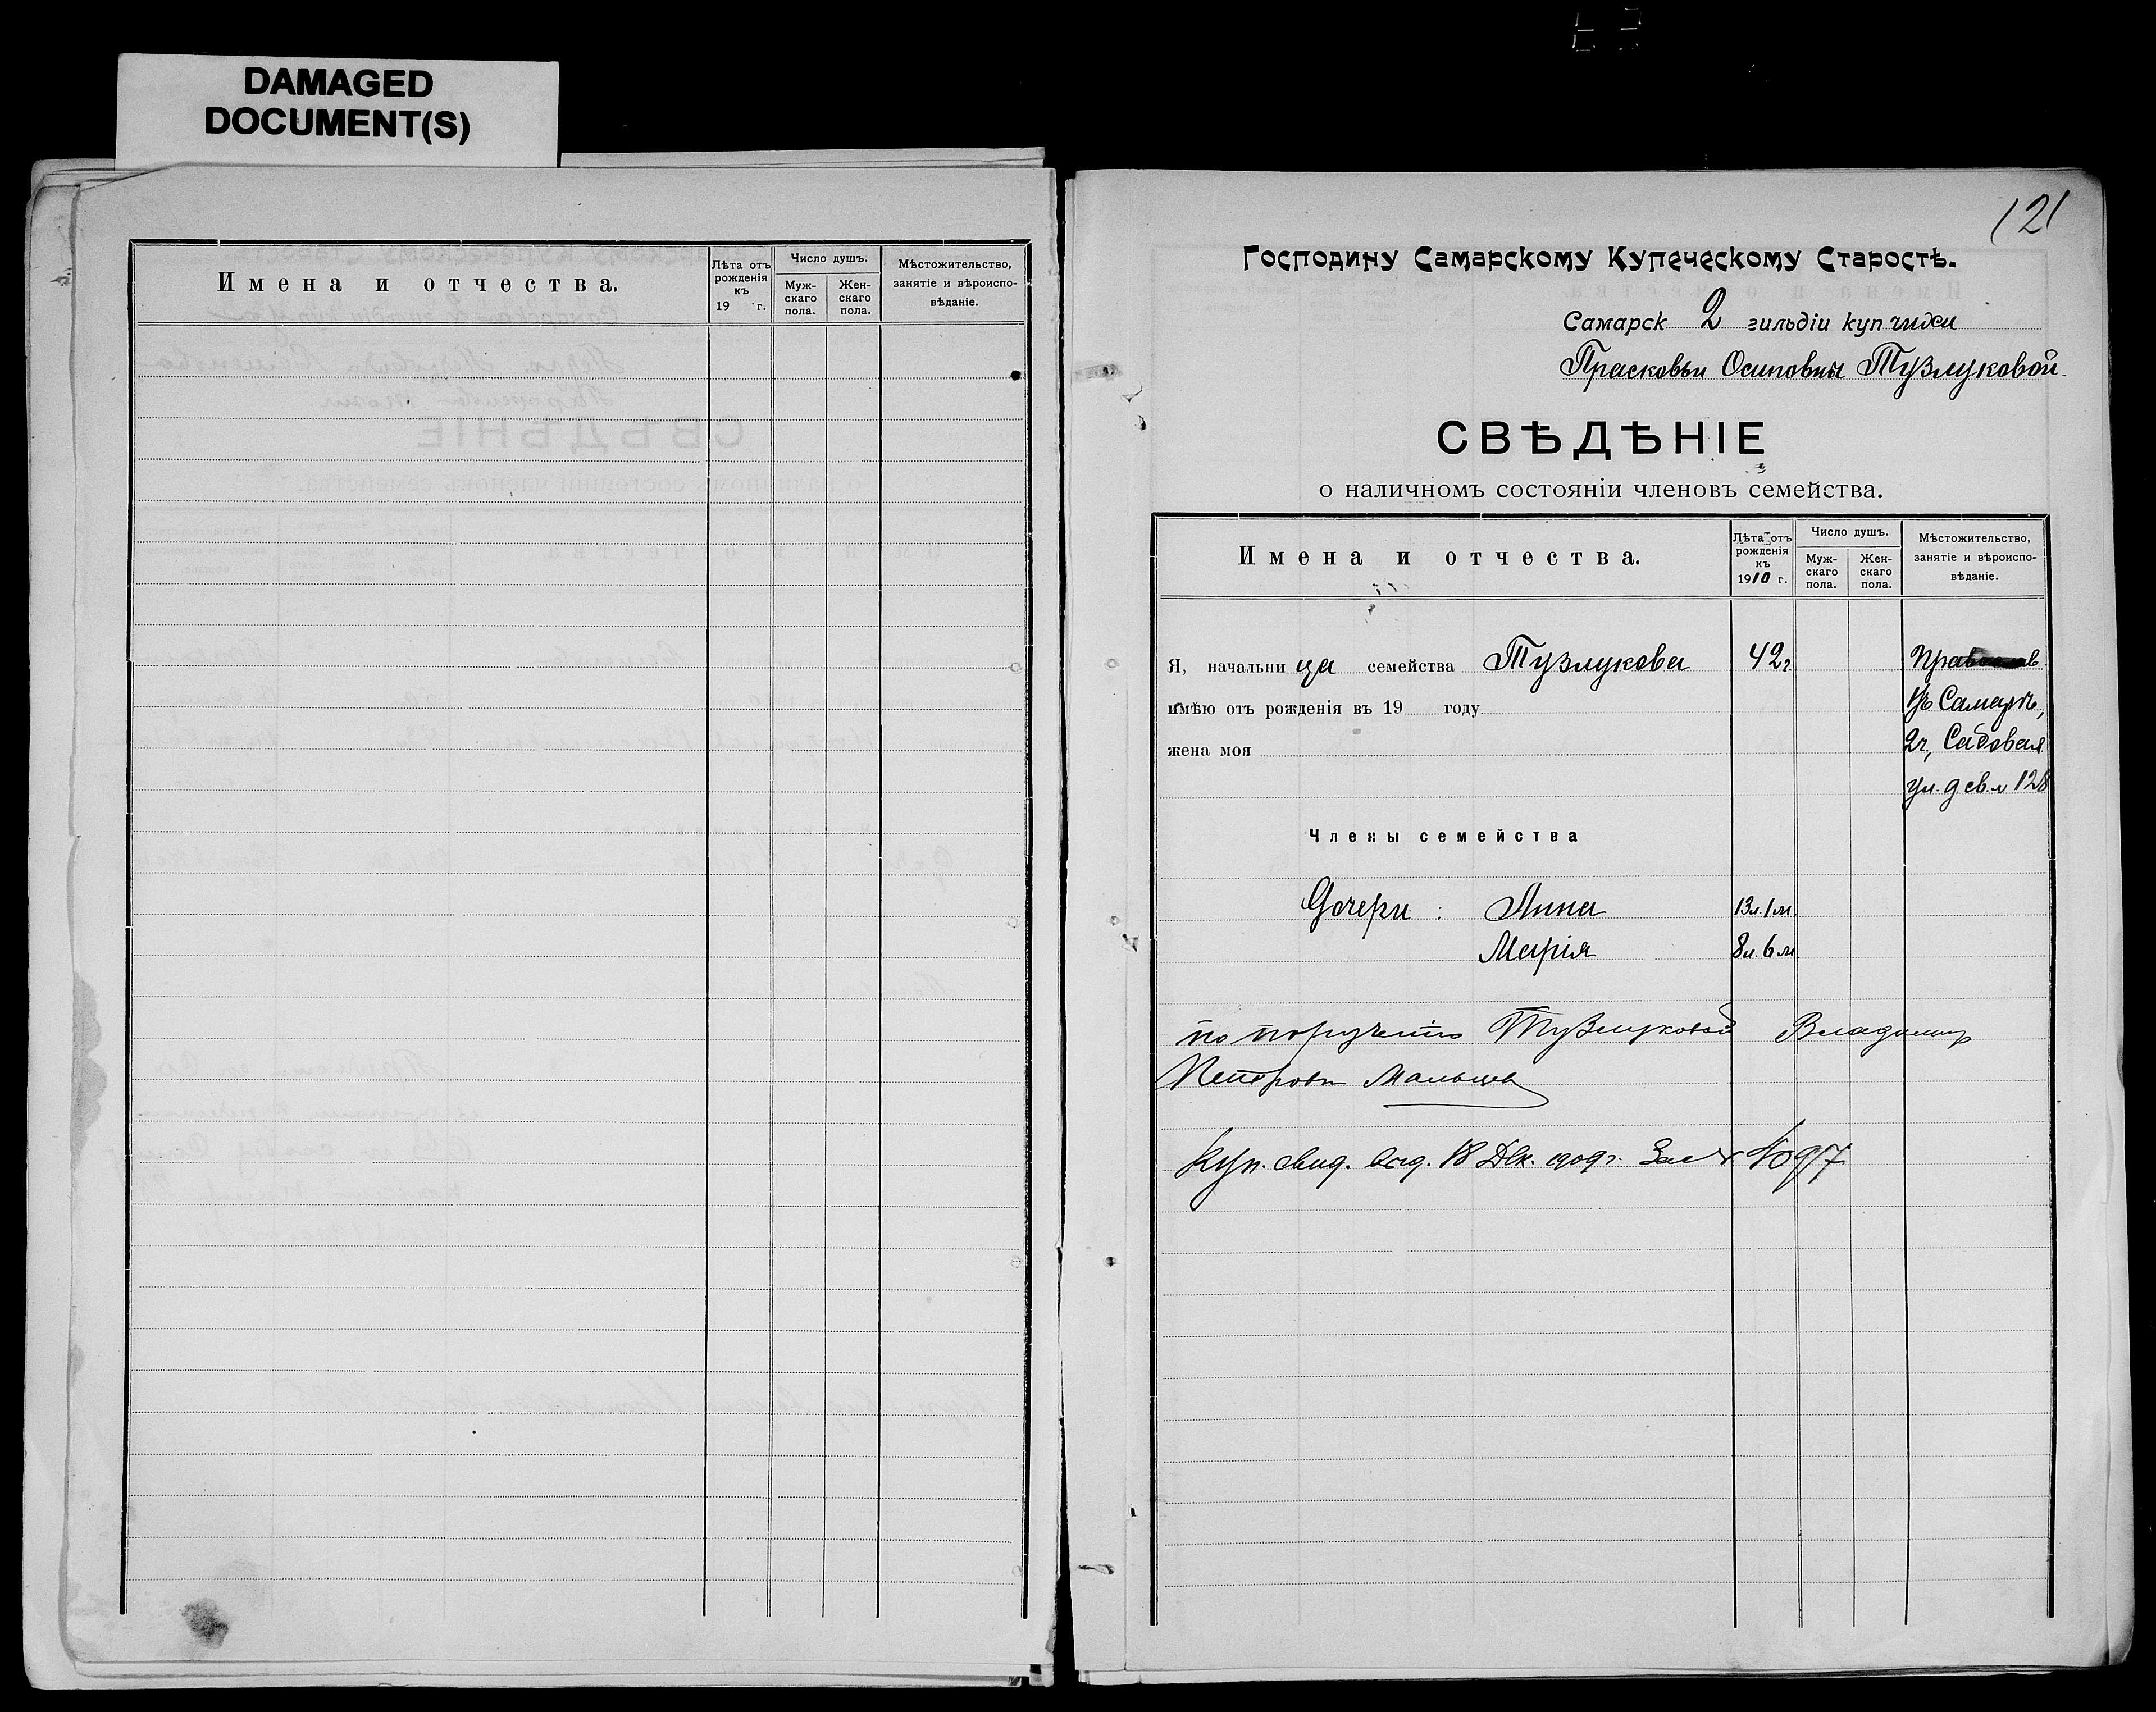 DAMAGED
DOCUMENT(S)
Имена и отчества.
Лѣта отъ рожденія къ 19 г.
Число душъ.
Муж-скаго пола.
Жен-скаго пола.
Мѣстожительство, занятіе и вѣроиспо-вѣданіе.
121
Господину Самарскому Купеческому Старостѣ.
Самарск 2 гильдіи купчихи
Прасковьи Осиповны Тузлуковой
СВѢДѢНІЕ
о наличномъ состояніи членовъ семейства.
Имена и отчества.
Лѣта отъ рожденія къ 1910 г.
Число душъ.
Муж-скаго пола.
Жен-скаго пола.
Мѣстожительство, занятіе и вѣроиспо-вѣданіе.
Я, начальница семейства Тузлукова 42 г
имѣю отъ рожденія въ 19 году
жена моя
Въ Самарѣ,
2 ч, Садовая
ул. д св. № 128
Члены семейства
Дочери: Анна 13 л. 1 м.
Марія 8 л. 6 м.
по порученію Тузлуковой Владимир
Петровъ Мальцев
Куп. свид. выд. 18 Дек. 1909 г. За №